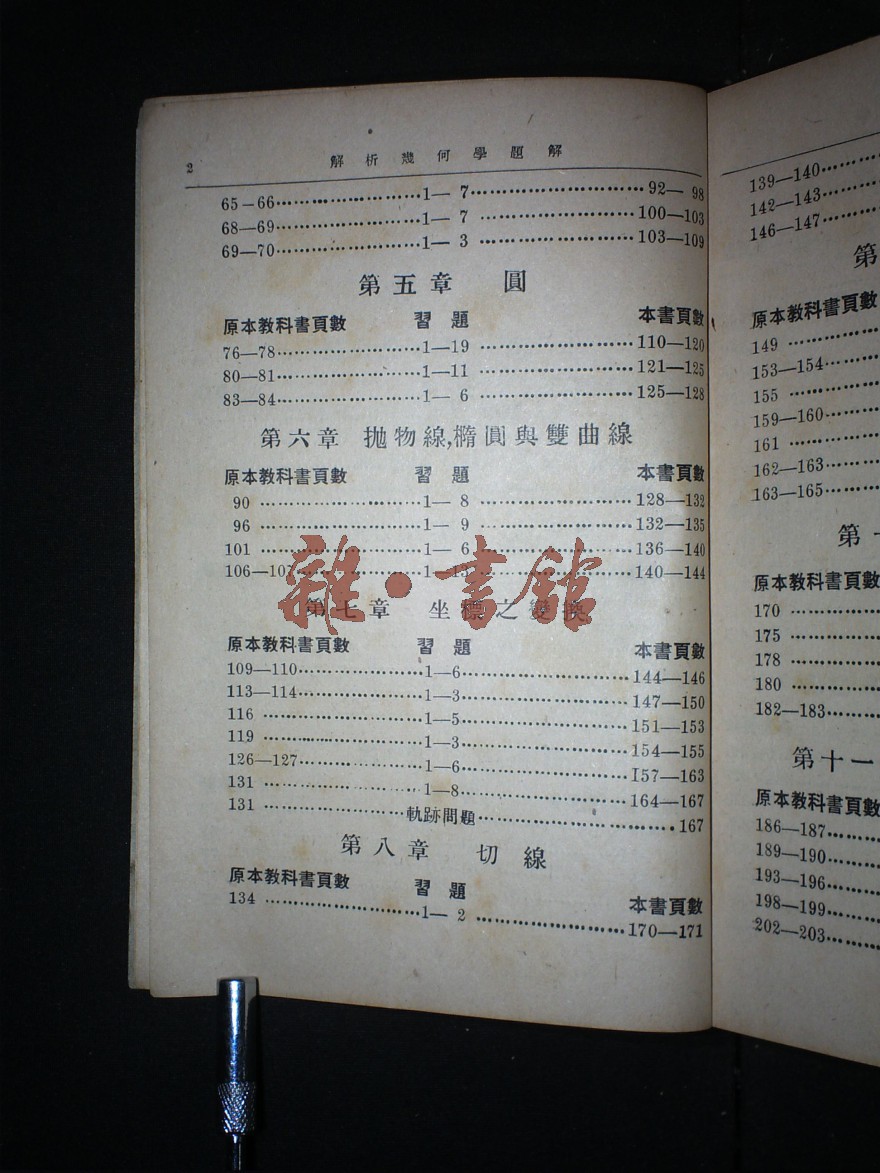 2 解析幾何學題解
65-66 1— 7 92— 98
68—69 1— 7 100—103
69—70 1— 3 103—109
第五章 圓
原本教科書頁數 習題 本書頁數
76—78 1—19 110—120
80—81 1—11 121—125
83—84 1— 6 125—128
第六章 抛物線,橢圓與雙曲線
原本教科書頁數 習題 本書頁數
90 1— 8 128—132
96 1— 9 132—135
101 1— 6 136—140
106—107 1—13 140—144
雜·書館
第七章 坐標之變換
原本教科書頁數 習題 本書頁數
109—110 1—6 144—146
113—114 1—3 147—150
116 1—5 151—153
119 1—3 154—155
126—127 1—6 157—163
131 1—8 164—167
131 軌跡問題 167
第八章 切線
原本教科書頁數 習題 本書頁數
134 1— 2 170—171
139—140
142—143
146—147
第
原本教科書頁數
149
153—154
155
159—160
161
162—163
163—165
第
原本教科書頁數
170
175
178
180
182—183
第十一
原本教科書頁數
186—187
189—190
193—196
198—199
202—203